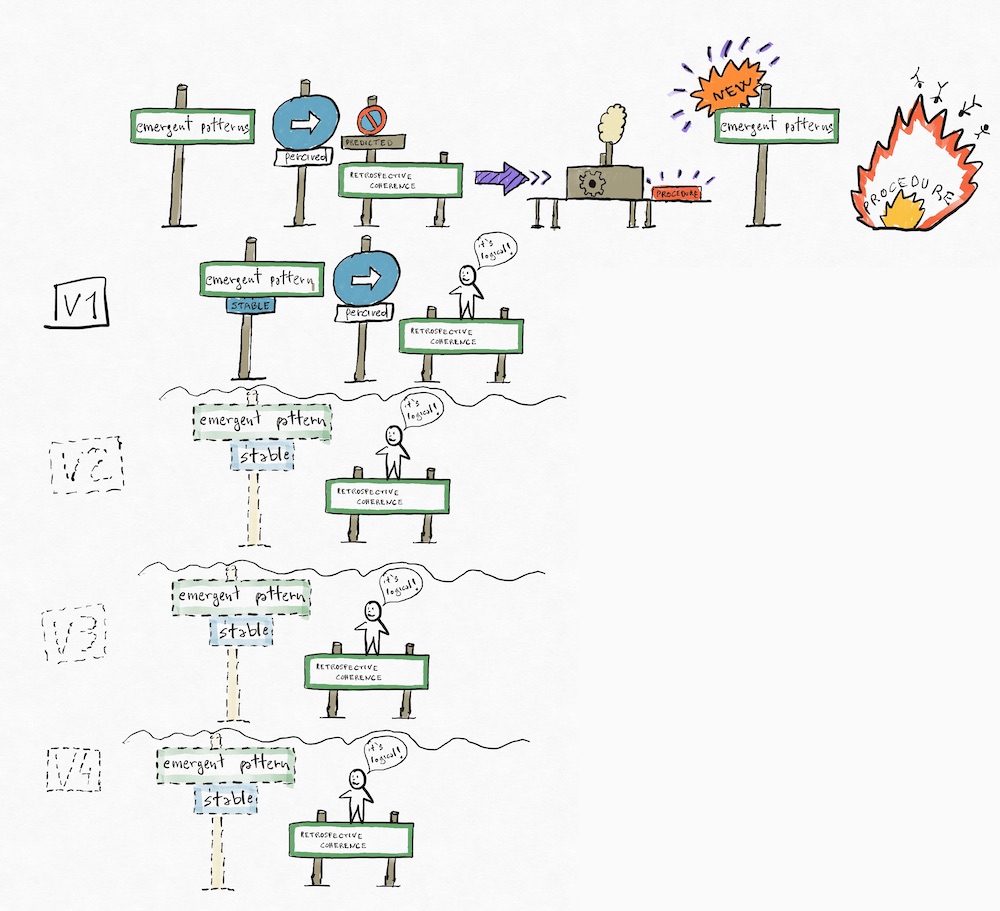 NEW
emergent patterns
percived
PREDICTED
RETROSPECTIVE
COHERENCE
PROCEDURE
emergent patterns
PROCEDURE
V1
emergent pattern
STABLE
percived
it's
logical!
RETROSPECTIVE
COHERENCE
V2
emergent pattern
stable
it's
logical!
RETROSPECTIVE
COHERENCE
V3
emergent pattern
stable
it's
logical!
RETROSPECTIVE
COHERENCE
V4
emergent pattern
stable
it's
logical!
RETROSPECTIVE
COHERENCE